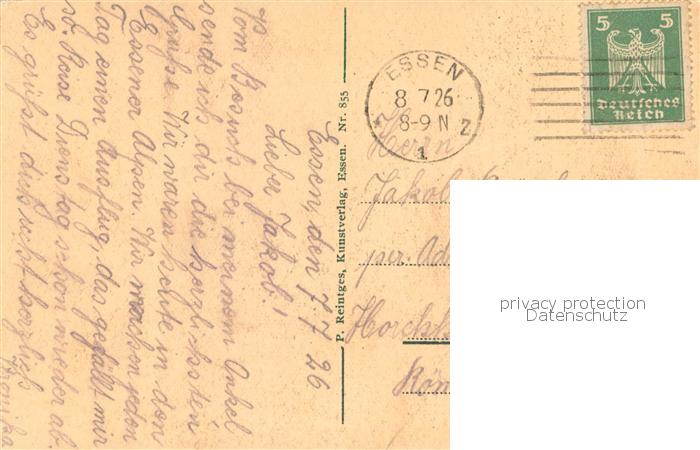 Essen, den 7.7.26
Lieber Jakob!
Vom Besuch bei meinem Onkel
sende ich dir die herzlichsten
Grüße. Wir waren heute in den
Essener Alpen. Wir machen jeden
Tag einen Ausflug, das gefällt mir
so. Reise Dienstag schon wieder ab.
Es grüßt dich recht herzlich
P. Reintges, Kunstverlag, Essen. Nr. 855
ESSEN
8 7 26
8-9 N
1
5 5
Deutsches
Reich
Herrn
Jakob
per. Ad
privacy protection
Datenschutz